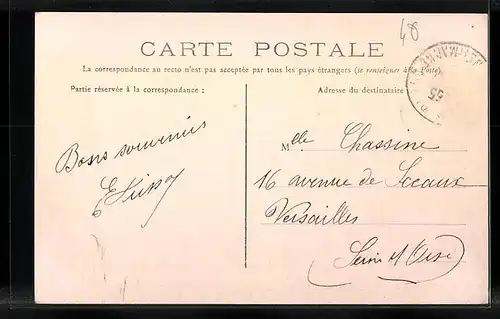 48
CARTE POSTALE
La correspondance au recto n'est pas acceptée par tous les pays étrangers (se renseigner à la Poste)
Partie réservée à la correspondance :
Adresse du destinataire
Bons souvenirs
Mlle Chassine
16 avenue de Sceaux
Versailles
(Seine et Oise)